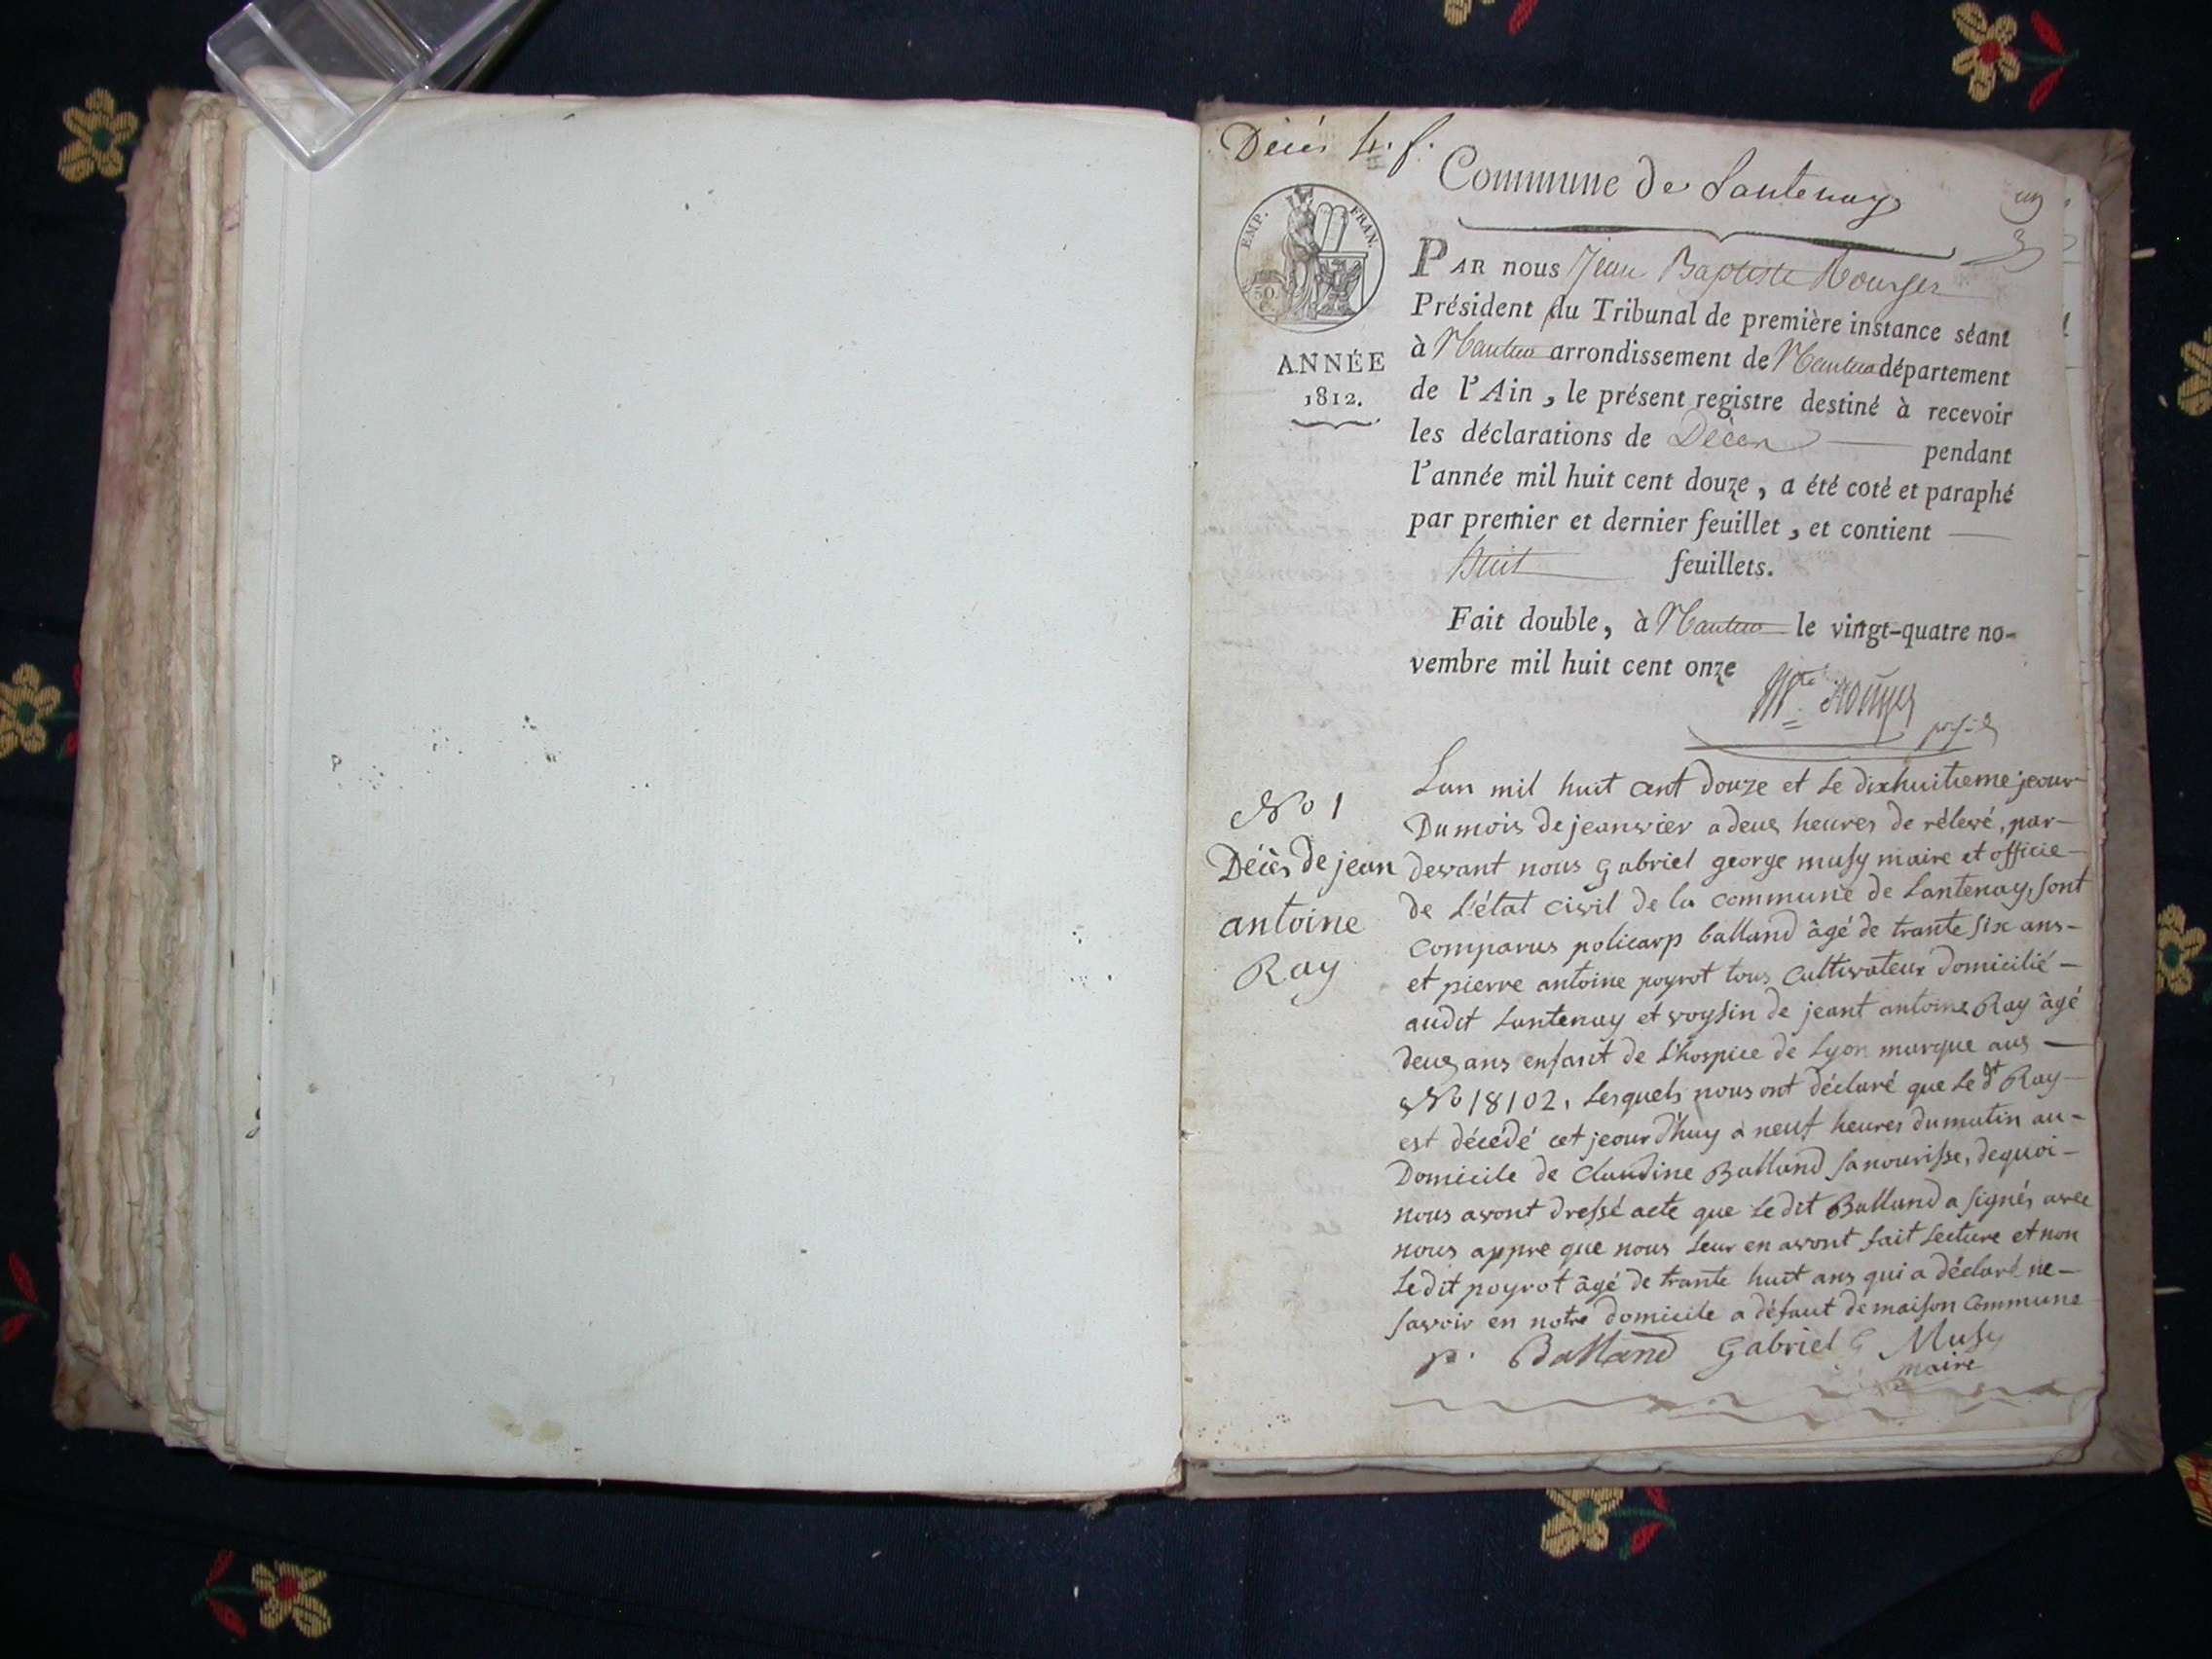 Décès 4. f.
Commune de Lantenay
un
EMP. FRAN.
50
ANNÉE
1812.
PAR nous Jean Baptiste Rouyer
Président du Tribunal de première instance séant
à Nantua arrondissement de Nantua département
de l'Ain, le présent registre destiné à recevoir
les déclarations de Décès pendant
l'année mil huit cent douze, a été coté et paraphé
par premier et dernier feuillet, et contient
huit feuillets.
Fait double, à Nantua le vingt-quatre no-
vembre mil huit cent onze
Rouyer
No 1
Décès de jean
antoine
Ray
Lan mil huit cent douze et Le dixhuitieme jeour
Du mois de jeanvier a deus heures de rélevé, par-
devant nous Gabriel george musy maire et officie
de L'état civil de la commune de Lantenay, sont
comparus policarp balland âgé de trante six ans-
et pierre antoine poyrot tous Cultivateur domicilié-
audit Lantenay et voysin de jeant antoine Ray âgé
deus ans enfant de L'hospice de Lyon marque aus
No 18102, Lesquels nous ont déclaré que Le dt Ray
est décédé cet jeourd'huy a neuf heures du matin au-
Domicile de Claudine Balland sa nourisse, dequoi-
nous avont dressé acte que Le dit Balland a signés avec
nous appre que nous Leur en avont fait Lecture et non
Ledit poyrot âgé de trante huit ans qui a déclaré ne-
savoir en notre domicile a défaut de maison Commune
p. Balland Gabriel G Musy
maire